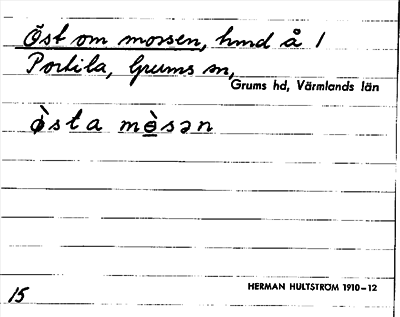 Öst om mossen, hmd å 1
Portila, Grums sn,
Grums hd, Värmlands län
ö̀sta mò̲sən
HERMAN HULTSTRÖM 1910-12
15